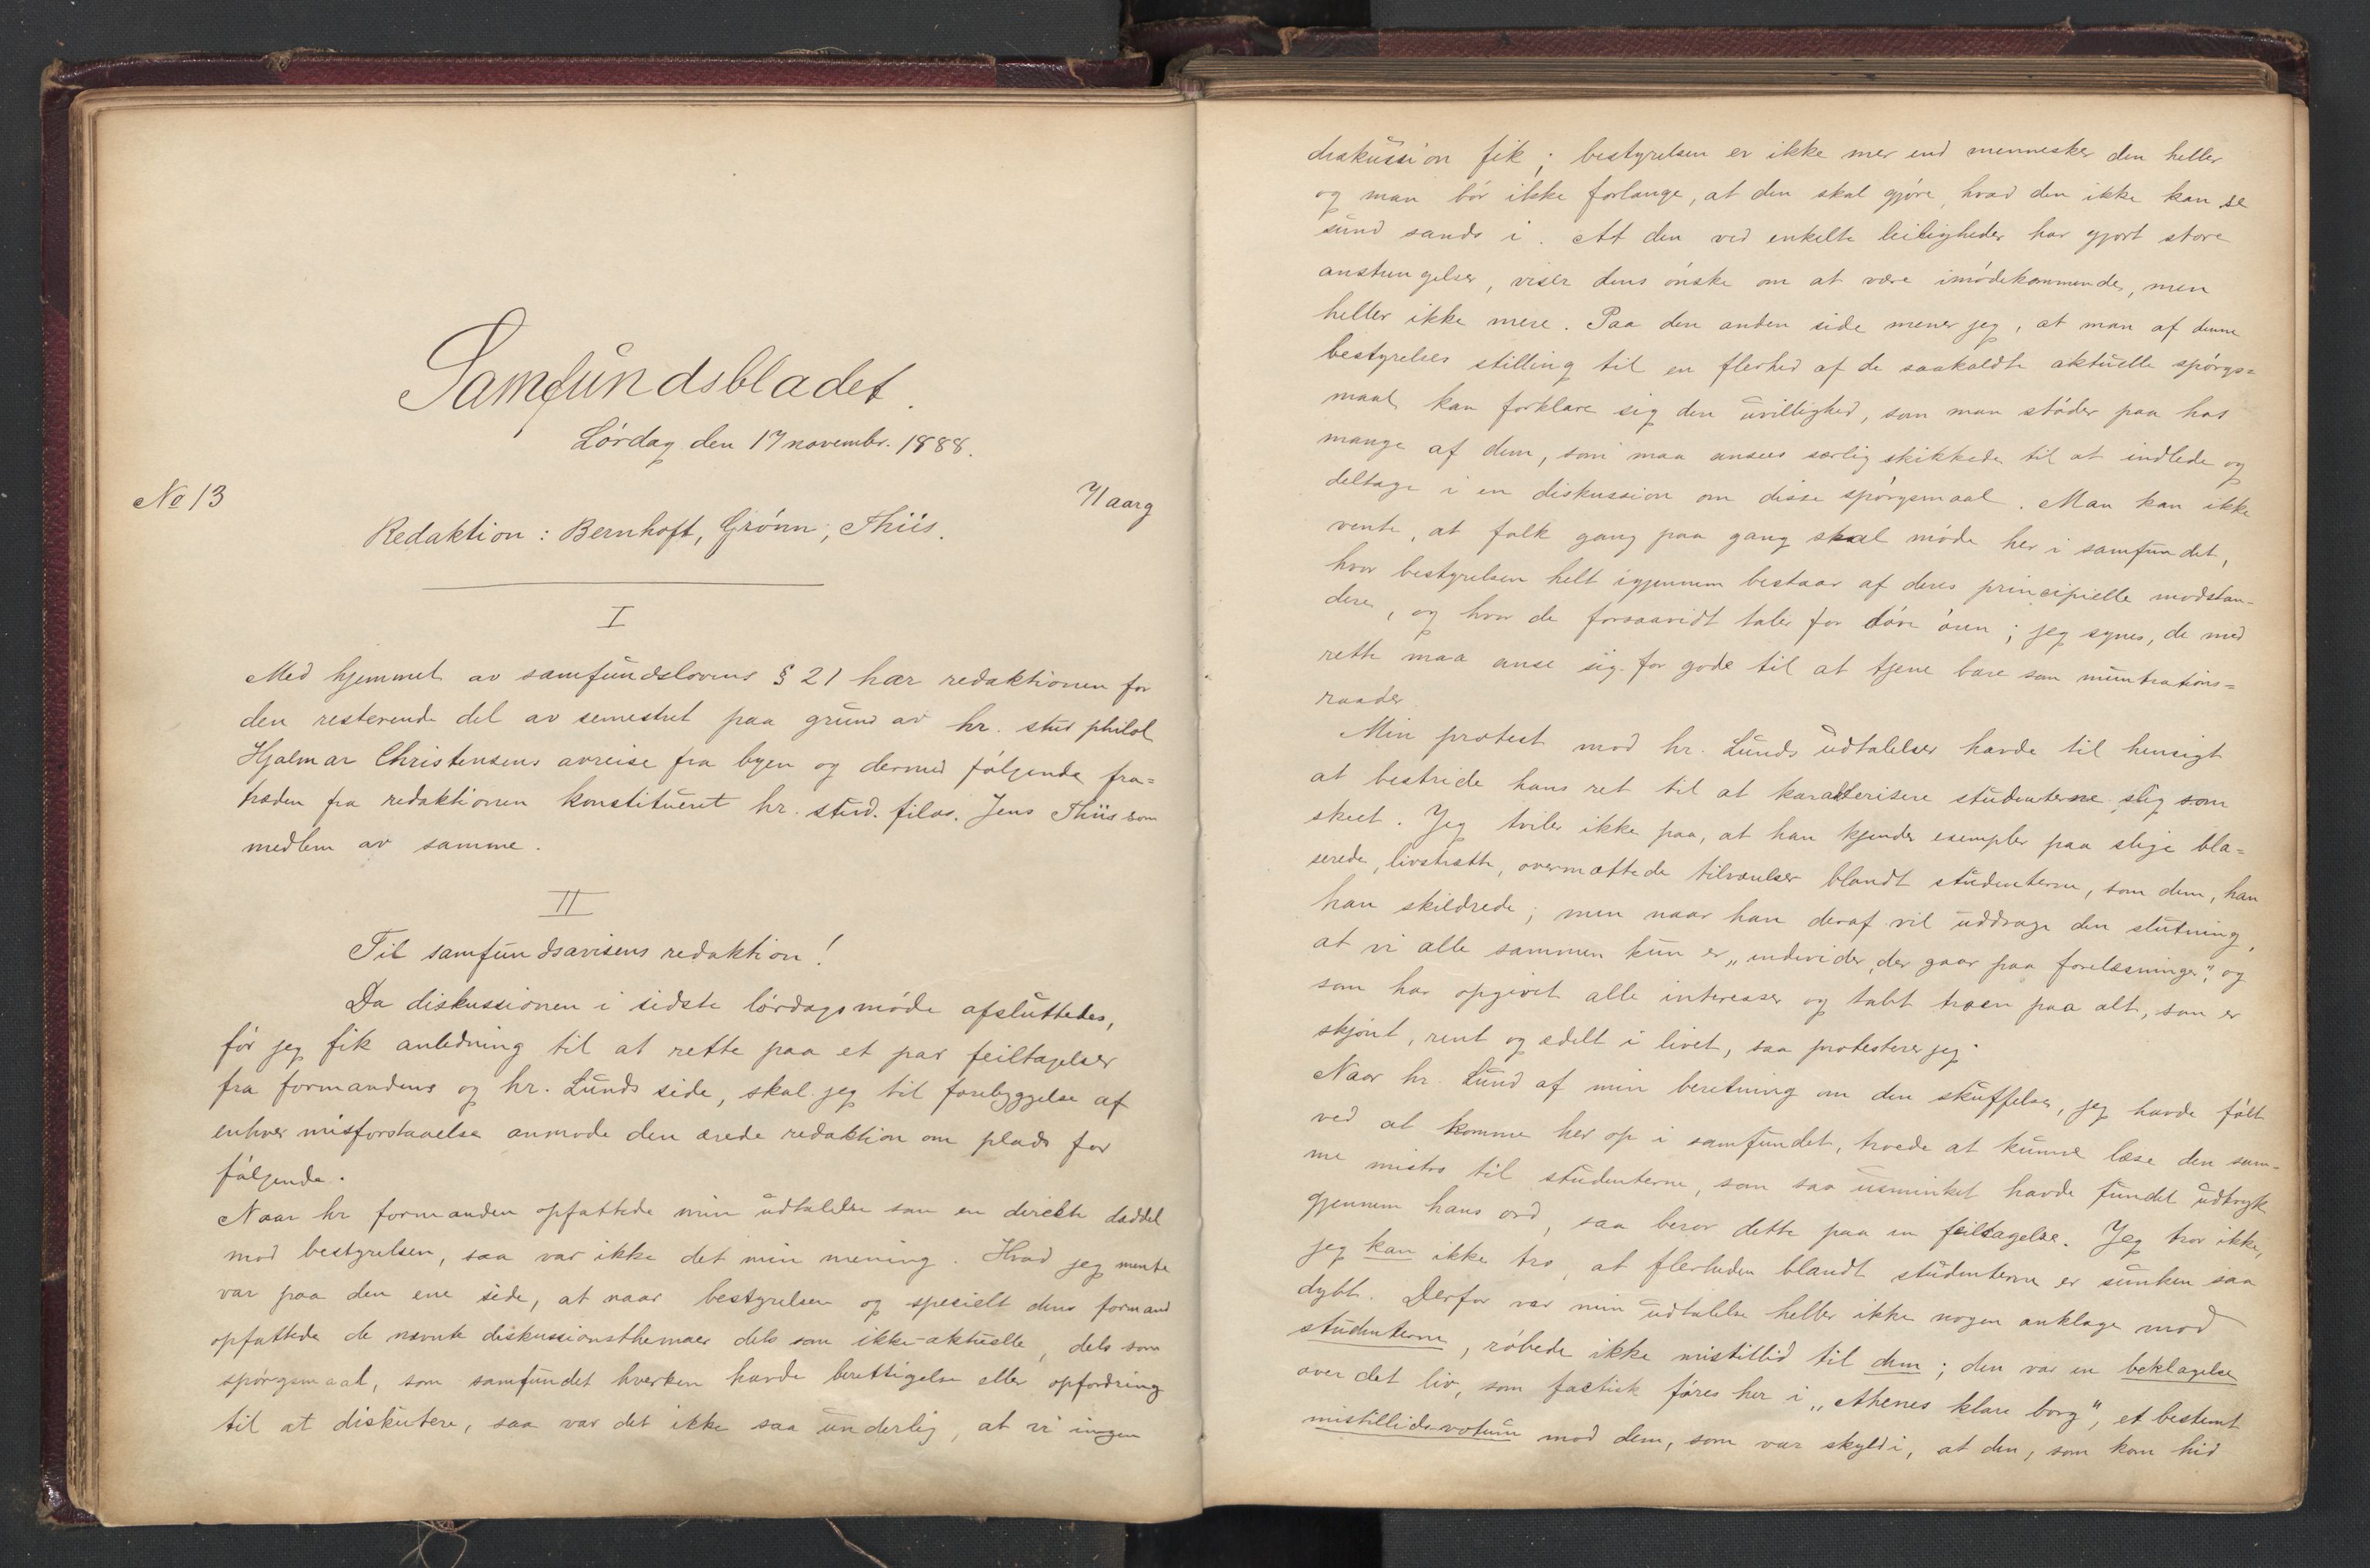 Samfundsbladet.
Lórdag den 17 novembr. 1888.
No 13
71 aarg
Redaktion: Bernhoft, Grónn, Thiis.
I
Med hjemmel av samfundslovens § 21 har redaktionen for
den resterende del av semestret paa grund av hr. stud philol
Hjalmar Christensens avreise fra byen og dermed fólgende fra=
træden fra redaktionen konstitueret hr. stud. filos. Jens Thiis som
medlem av samme.
II
Til samfundsavisens redaktion!
Da diskussionen i sidste lórdagsmóde afsluttedes,
fór jeg fik anledning til at rette paa et par feiltagelser
fra formandens og hr. Lunds side, skal jeg til forebyggelse af
enhver misforstaaelse anmode den ærede redaktion om plads for
fólgende.
Naar hr formanden opfattede min udtalelse som en direkte daddel
mod bestyrelsen, saa var ikke det min mening. Hvad jeg mente
var paa den ene side, at naar bestyrelsen og specielt dens formand
opfattede de nævnte diskussionsthemaer dels som ikke-aktuelle, dels som
spórgsmaal, som samfundet hverken havde berettigelse eller opfordring
til at diskutere, saa var det ikke saa underlig, at vi ingen
diskussion fik; bestyrelsen er ikke mer end mennesker den heller
og man bór ikke forlange, at den skal gjóre, hvad den ikke kan se
sund sands i. At den ved enkelte leiligheder har gjort store
anstrengelser, viser dens ónske om at være imódekommende, men
heller ikke mere. Paa den anden side mener jeg, at man af denne
bestyrelses stilling til en flerhed af de saakaldte aktuelle spórgs=
maal kan forklare sig den uvillighed, som man stóder paa hos
mange af dem, som maa ansees særlig skikkede til at indlede og
deltage i en diskussion om disse spórgsmaal. Man kan ikke
vente, at folk gang paa gang skal móde her i samfundet,
hvor bestyrelsen helt igjennem bestaar af deres principielle modstan-
dere, og hvor de forsaavidt taler for dóve óren; jeg synes, de med
rette maa anse sig for gode til at tjene bare som muntrations=
raader
Min protest mod hr. Lunds udtalelser havde til hensigt
at bestride hans ret til at karakterisere studenterne slig som
skeet. Jeg tviler ikke paa, at han kjender exempler paa slige bla=
serede, livstrætte, overmættede tilværelser blandt studenterne, som dem, han
han skildrede; men naar han deraf vil uddrage den slutning,
at vi alle sammen kun er „individer, der gaar paa forelæsninger", og
som har opgivet alle interesser og tabt troen paa alt, som er
skjónt, rent og ædelt i livet, saa protesterer jeg.
Naar hr. Lund af min beretning om den skuffelse, jeg havde fólt
ved at komme her op i samfundet, troede at kunne læse den sam-
me mistro til studenterne, som saa usminket havde fundet udtryk
gjennem hans ord, saa beror dette paa en feiltagelse. Jeg tror ikke,
jeg kan ikke tro, at flerheden blandt studenterne er sunken saa
dybt. Derfor var min udtalelse heller ikke nogen anklage mod
studenterne, róbede ikke mistillid til dem; den var en beklagelse
over det liv, som factisk fóres her i „Athenes klare borg", et bestemt
mistillids-votum mod dem, som var skyld i, at den, som kom hid